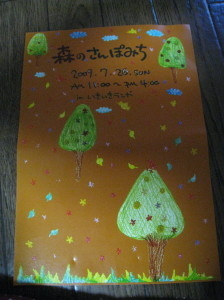 森のさんぽみち
2009. 7. 26. SUN
AM 11:00 〜 PM 4:00